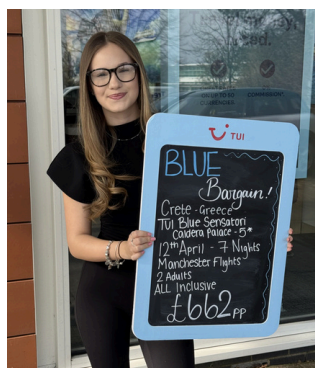 TUI
BLUE
Bargain!
Crete - Greece
TUI Blue Sensatori
Caldera Palace - 5*
12th April - 7 Nights
Manchester Flights
2 Adults
ALL Inclusive
£662pp